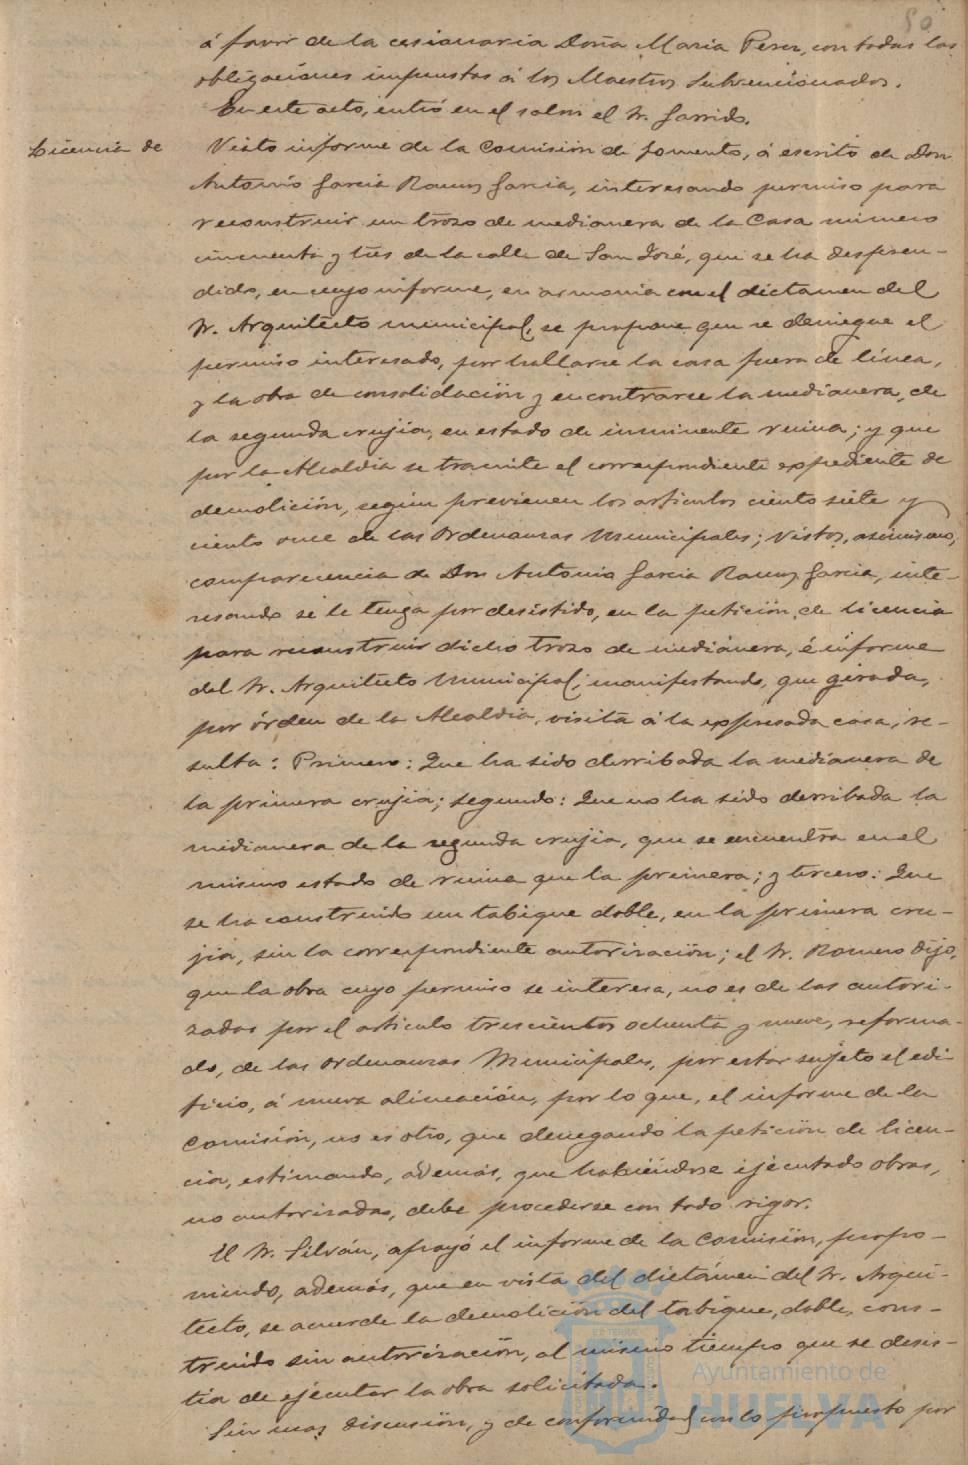 50
á favor de la cesionaria Doña Maria Perez, con todas las
obligaciones impuestas á los Maestros Subvencionados.
En este acto, entró en el salon el Sr. Garrido.
Licencia de
Visto informe de la Comisión de fomento, á escrito de Don
Antonio Garcia Ramos Garcia, interesando permiso para
reconstruir un trozo de medianera de la Casa número
cincuenta y tres de la calle de San José, que se ha despren-
dido, en cuyo informe, en armonia con el dictamen del
Sr. Arquitecto municipal, se propone que se deniegue el
permiso interesado, por hallarse la casa fuera de línea,
y la obra de consolidación y encontrarse la medianera, de
la segunda crujia, en estado de inminente ruina; y que
por la Alcaldia se tramite el correspondiente expediente de
demolición, según previenen los articulos ciento siete y
ciento once de las Ordenanzas Municipales; Vistos, asimismo,
comparecencia de Don Antonio Garcia Ramos Garcia, inte-
resando se le tenga por desistido, en la petición, de licencia
para reconstruir dicho trozo de medianera, é informe
del Sr. Arquitecto Municipal, manifestando, que girada,
por órden de la Alcaldia, visita á la expresada casa, re-
sulta: Primero: Que ha sido derribada la medianera de
la primera crujia; Segundo: Que no ha sido derribada la
medianera de la segunda crujia, que se encuentra en el
mismo estado de ruina que la primera; y tercero: Que
se ha construido un tabique doble, en la primera cru-
jia, sin la correspondiente autorización; el Sr. Romero dijo,
que la obra cuyo permiso se interesa, no es de las autori-
zadas por el articulo trescientos ochenta y nueve, reforma-
do, de las Ordenanzas Municipales, por estar sujeto el edi-
ficio, á nueva alineación, por lo que, el informe de la
Comisión, no es otro, que denegando la petición de licen-
cia, estimando, además, que habiéndose ejecutado obras,
no autorizadas, debe procederse con todo rigor.
El Sr. Silván, apoyó el informe de la Comisión, propo-
niendo, además, que en vista del dictámen del Sr. Arqui-
tecto, se acuerde la demolición del tabique, doble, cons-
truido sin autorización, al mismo tiempo que se desis-
tia de ejecutar la obra solicitada.
Sin mas discusión, y de conformidad con lo propuesto por
Ayuntamiento de
HUELVA